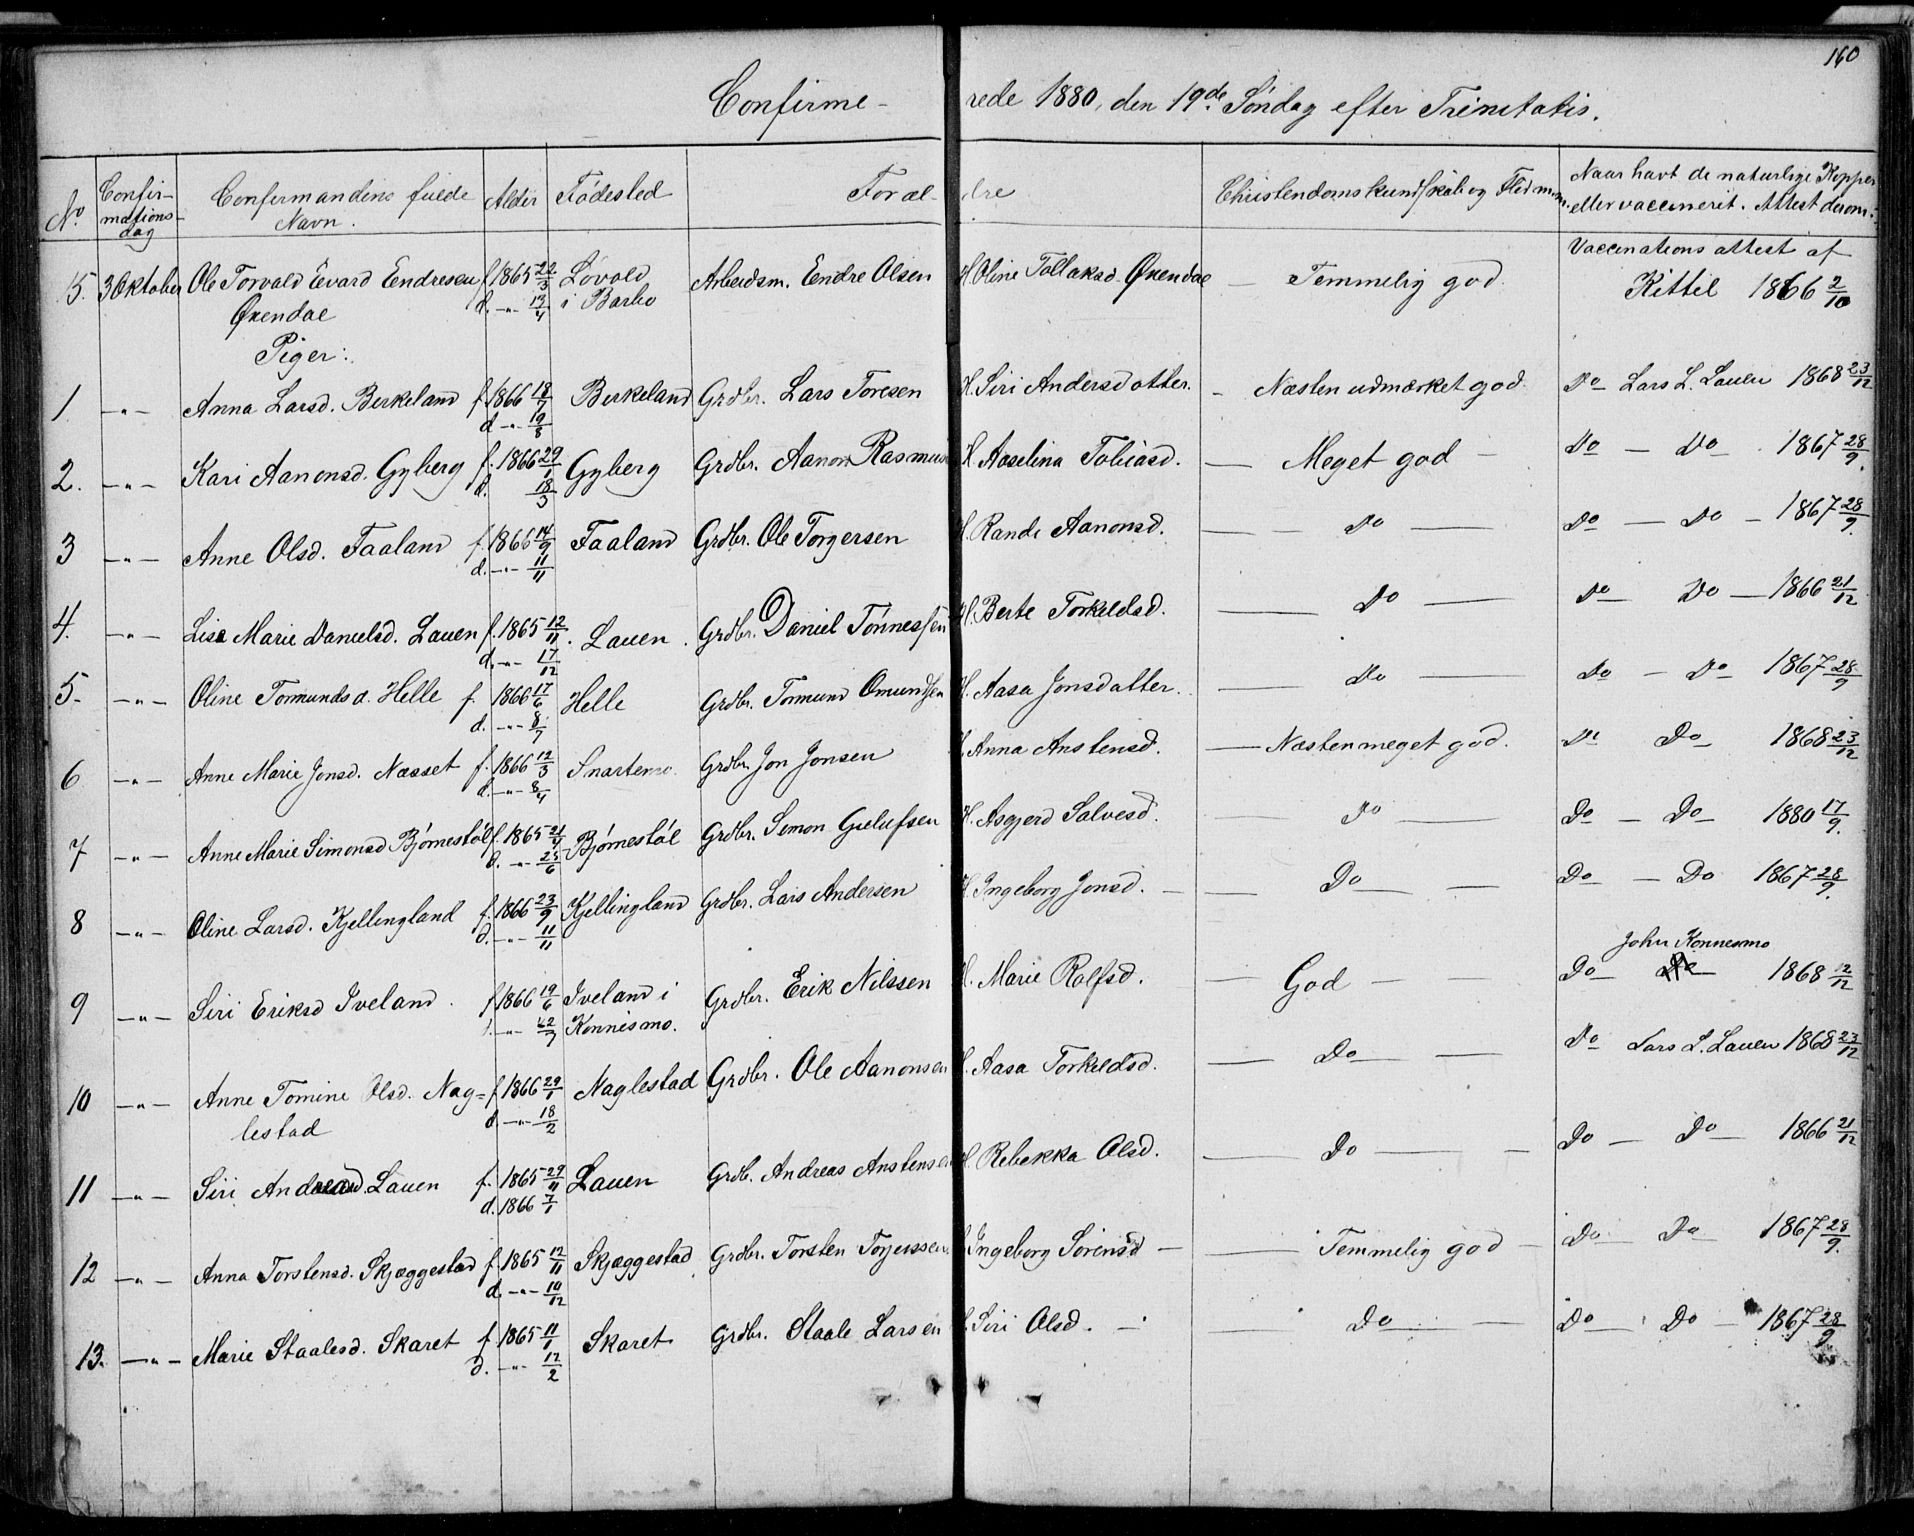 160
Confirme- rede 1880, den 19de Söndag efter Trinitatis.
No Confir-mations-dag Confirmandens fulde Navn. Alder Födested Foræl- dre Christendomskundskab og Naar havt de naturlige Kopper eller vaccinerit. Attest derom.
5. 3 Oktober Ole Torvald Evard Endresen f. 1865 22/3 Lövold Arbeidsm. Endre Olsen H. Oline Tollaksd. Öxendae — Temmelig god Vaccinations attest af
Öxendae d. -"- 13/4 i Barbo Kittil 1866 2/10
Piger:
1 -"- Anna Larsd. Berkeland f. 1866 18/7 Berkeland Grdbr. Lars Toresen H. Siri Andersdatter. - Næsten udmærket god Do Lars L. Lauen 1868 23/12
d -"- 19/8
2. -"- Kari Aanonsd. Gyberg f. 1866 29/1 Gyberg Grdbr. Aanon Rasmus H. Aaselina Tobiasd. — Meget god - Do — Do 1867 28/9.
d. 18/3
3 -"- Anne Olsd. Faaland f. 1866 14/9 Faaland Grdbr. Ole Torgersen H. Randi Aanonsd. — Do — Do — Do — 1867 28/9.
d. -"- 11/11
4. -"- Lise Marie Danielsd. Lauen f. 1865 12/11. Lauen. Grdbr. Daniel Tönnessen H. Berte Torkeldsd. — Do — Do Do — 1866 21/12
d. -"- 17/12
5. -"- Oline Tormundsd. Helle f. 1866 17/6 Helle Grdbr. Tormund Omundsen H. Aasa Jonsdatter. — Do — Do — Do 1867 28/9
d. -"- 8/7
6 -"- Anne Marie Jonsd. Næsset f. 1866 12/3 Snartemo Grdbr. Jon Jonsen H. Anna Anstensd. — Næsten meget god. Do Do 1868 23/12
d. -"- 8/4
7 -"- Anne Marie Simonsd Björnestöl f. 1865 21/4 Björnestöl Grdbr. Simon Gulufsen H. Asgjerd Salvesd. — Do — Do — Do 1880 17/9.
d. -"- 25/6
8 -"- Oline Larsd. Kjellingland f. 1866 23/9 Kjellingland Grdbr. Lars Andersen H. Ingeborg Jonsd. — — Do — Do — Do 1867 28/9.
d. -"- 11/11
John Konnesmo
9 -"- Siri Eriksd Iveland. f. 1866 19/6 Iveland i Grdbr. Erik Nilssen H. Marie Rolfsd. — God — Do 1868 12/12
-"- 22/7 Konnismo.
10 -"- Anne Tomine Olsd. Nag= f. 1866 29/1 Naglestad Grdbr. Ole Aanonsen H. Aasa Torkeldsd. — Do — Do Lars L. Lauen 1868 23/12
lestad d. -"- 18/2
11 -"- Siri Andreasd. Lauen f. 1865 29/11 Lauen Grdb. Andreas Anstensen H. Rebekka Olsd. — Do — Do — Do 1866 21/12
d. 1866 7/1
12 -"- Anna Torstensd. Skjæggestad f. 1865 12/11 Skjæggestad Grdbr. Torsten Torjerssen H. Ingeborg Sörensd — — Temmelig god — Do Do 1867 28/9.
d. -"- 10/12
13. -"- Marie Staalesd. Skaret f. 1865 11/1 Skaret Grdbr. Staale Larsen H. Siri Olsd. — — Do — Do — Do — 1867 28/9
d. -"- 12/2